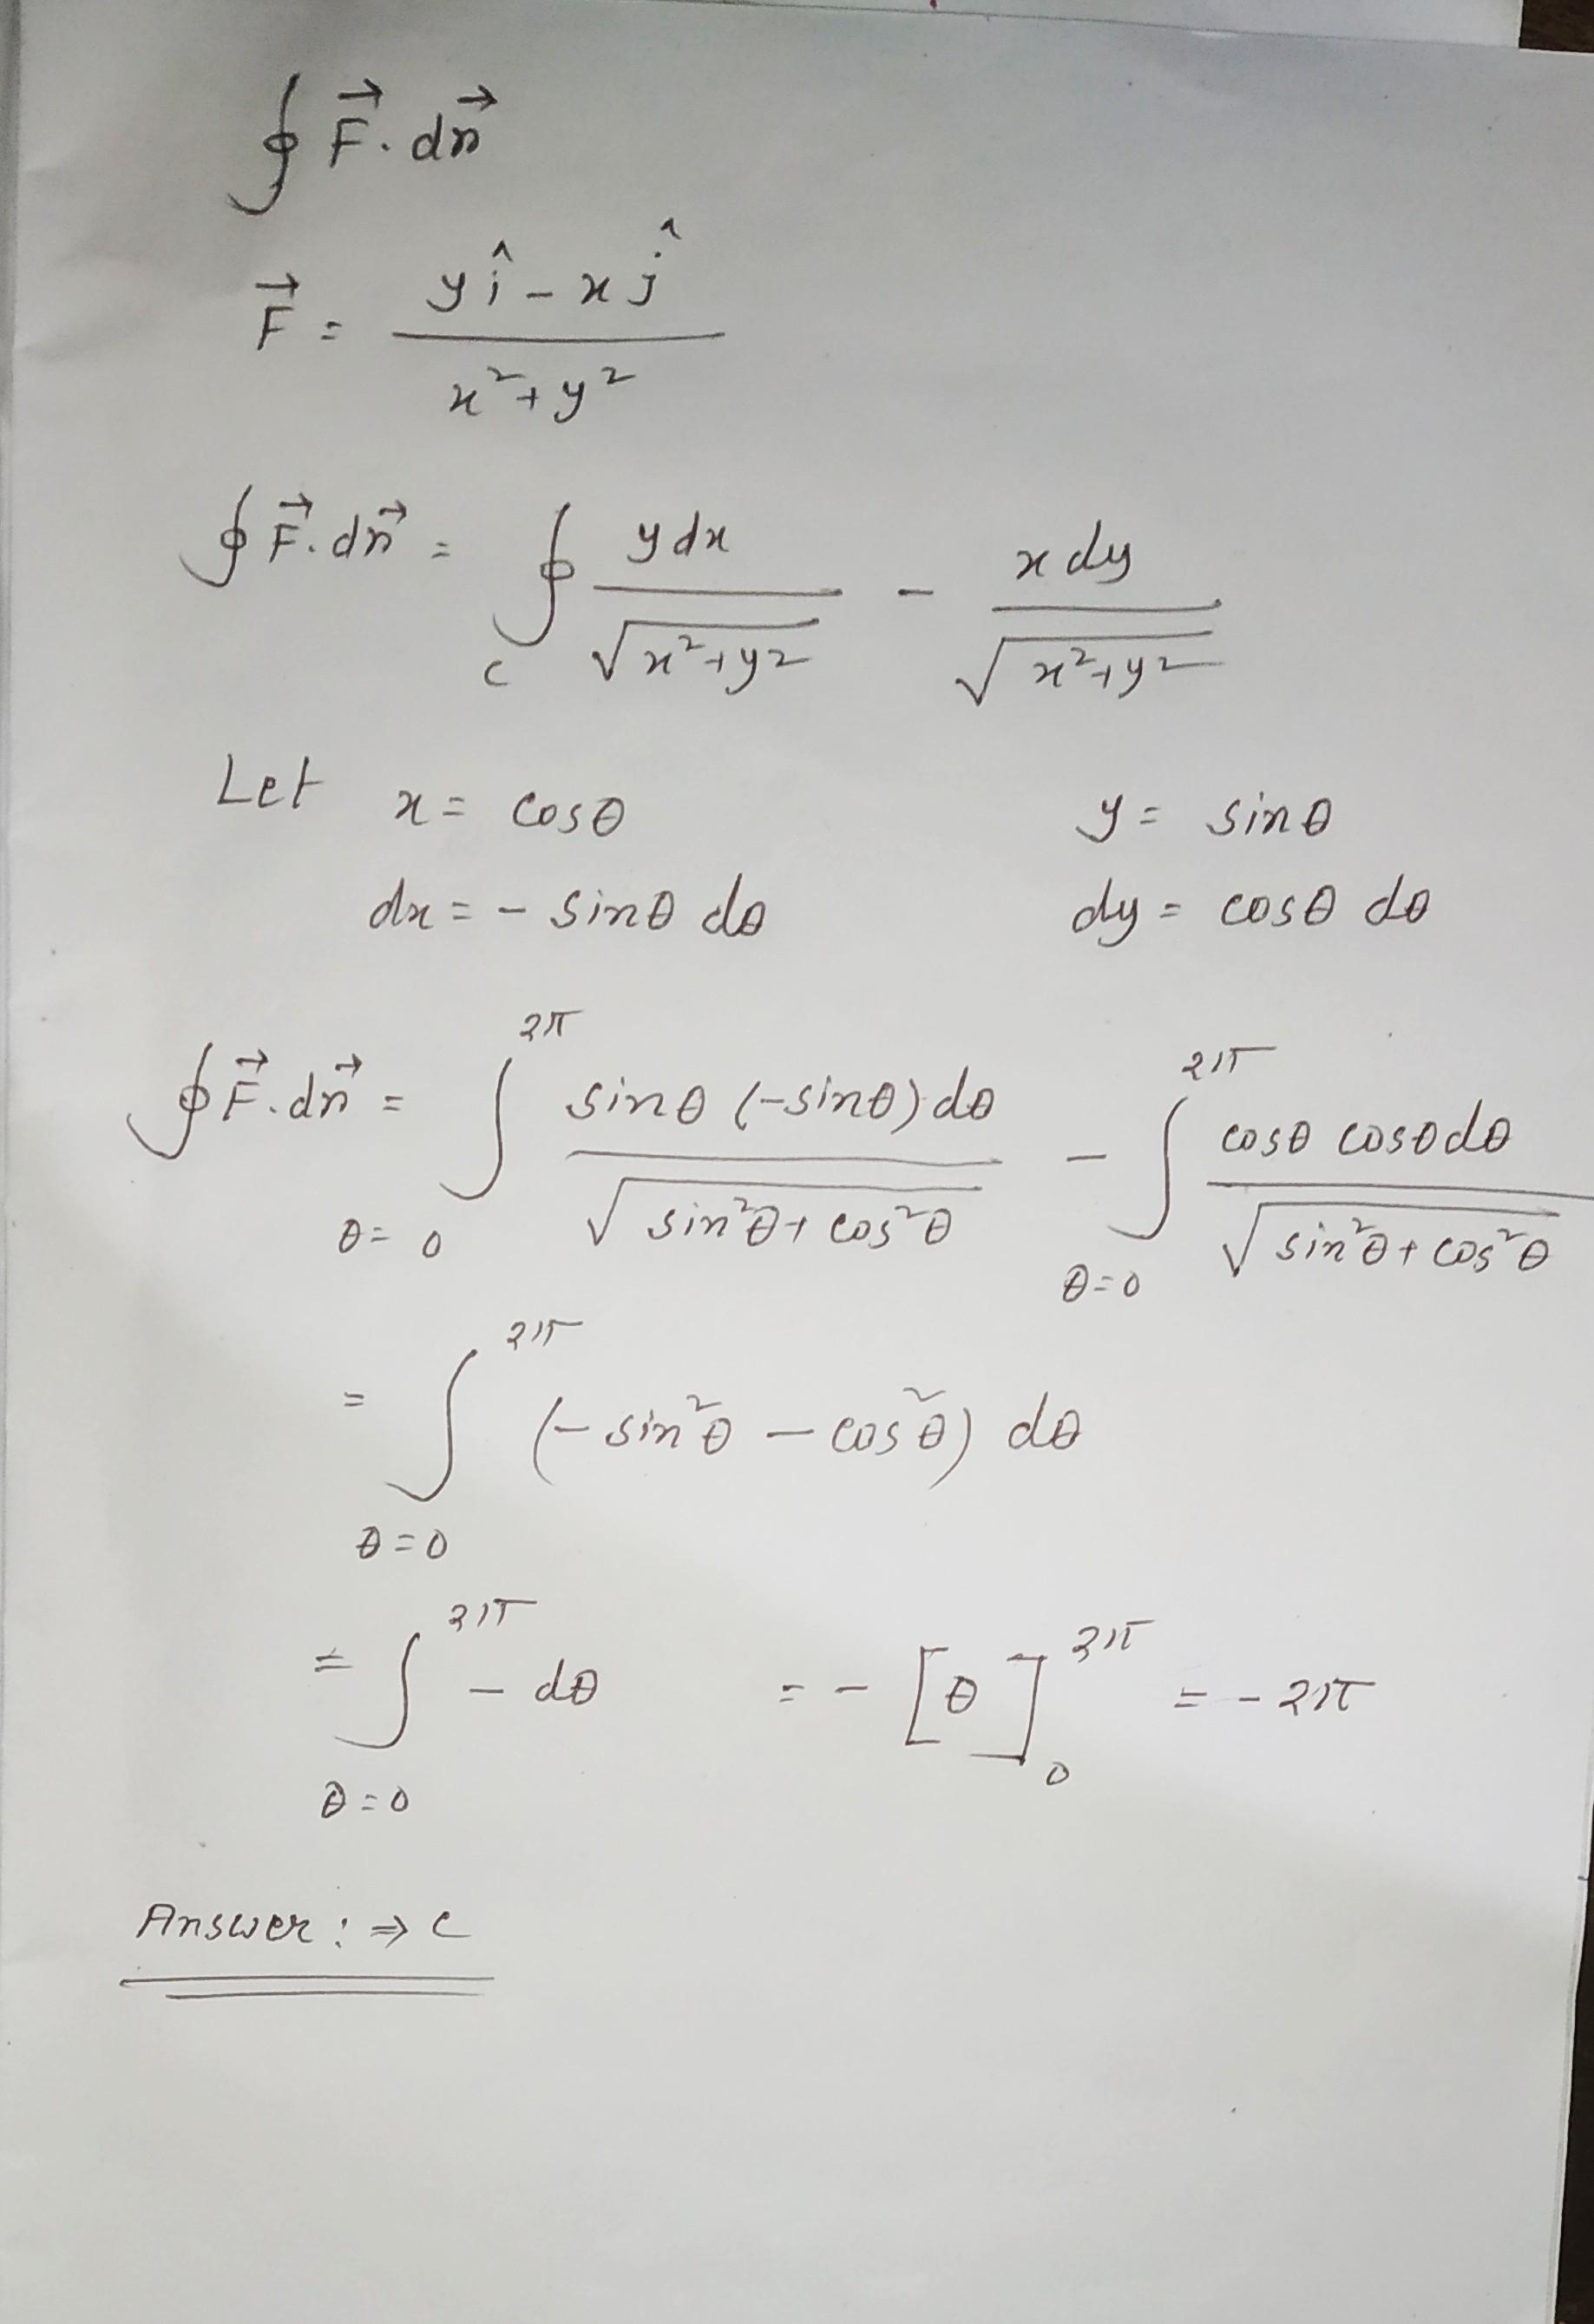 ∮ F⃗. dr⃗
F⃗ = (y î - x ĵ) / (x² + y²)
∮ F⃗. dr⃗ = ∮_C y dx / √(x² + y²) - x dy / √(x² + y²)
Let x = cosθ y = sinθ
dx = - sinθ dθ dy = cosθ dθ
∮ F⃗. dr⃗ = ∫_{θ=0}^{2π} sinθ (-sinθ) dθ / √(sin²θ + cos²θ) - ∫_{θ=0}^{2π} cosθ cosθ dθ / √(sin²θ + cos²θ)
= ∫_{θ=0}^{2π} (- sin²θ - cos²θ) dθ
= ∫_{θ=0}^{2π} - dθ = - [θ]_0^{2π} = - 2π
Answer : ⇒ C